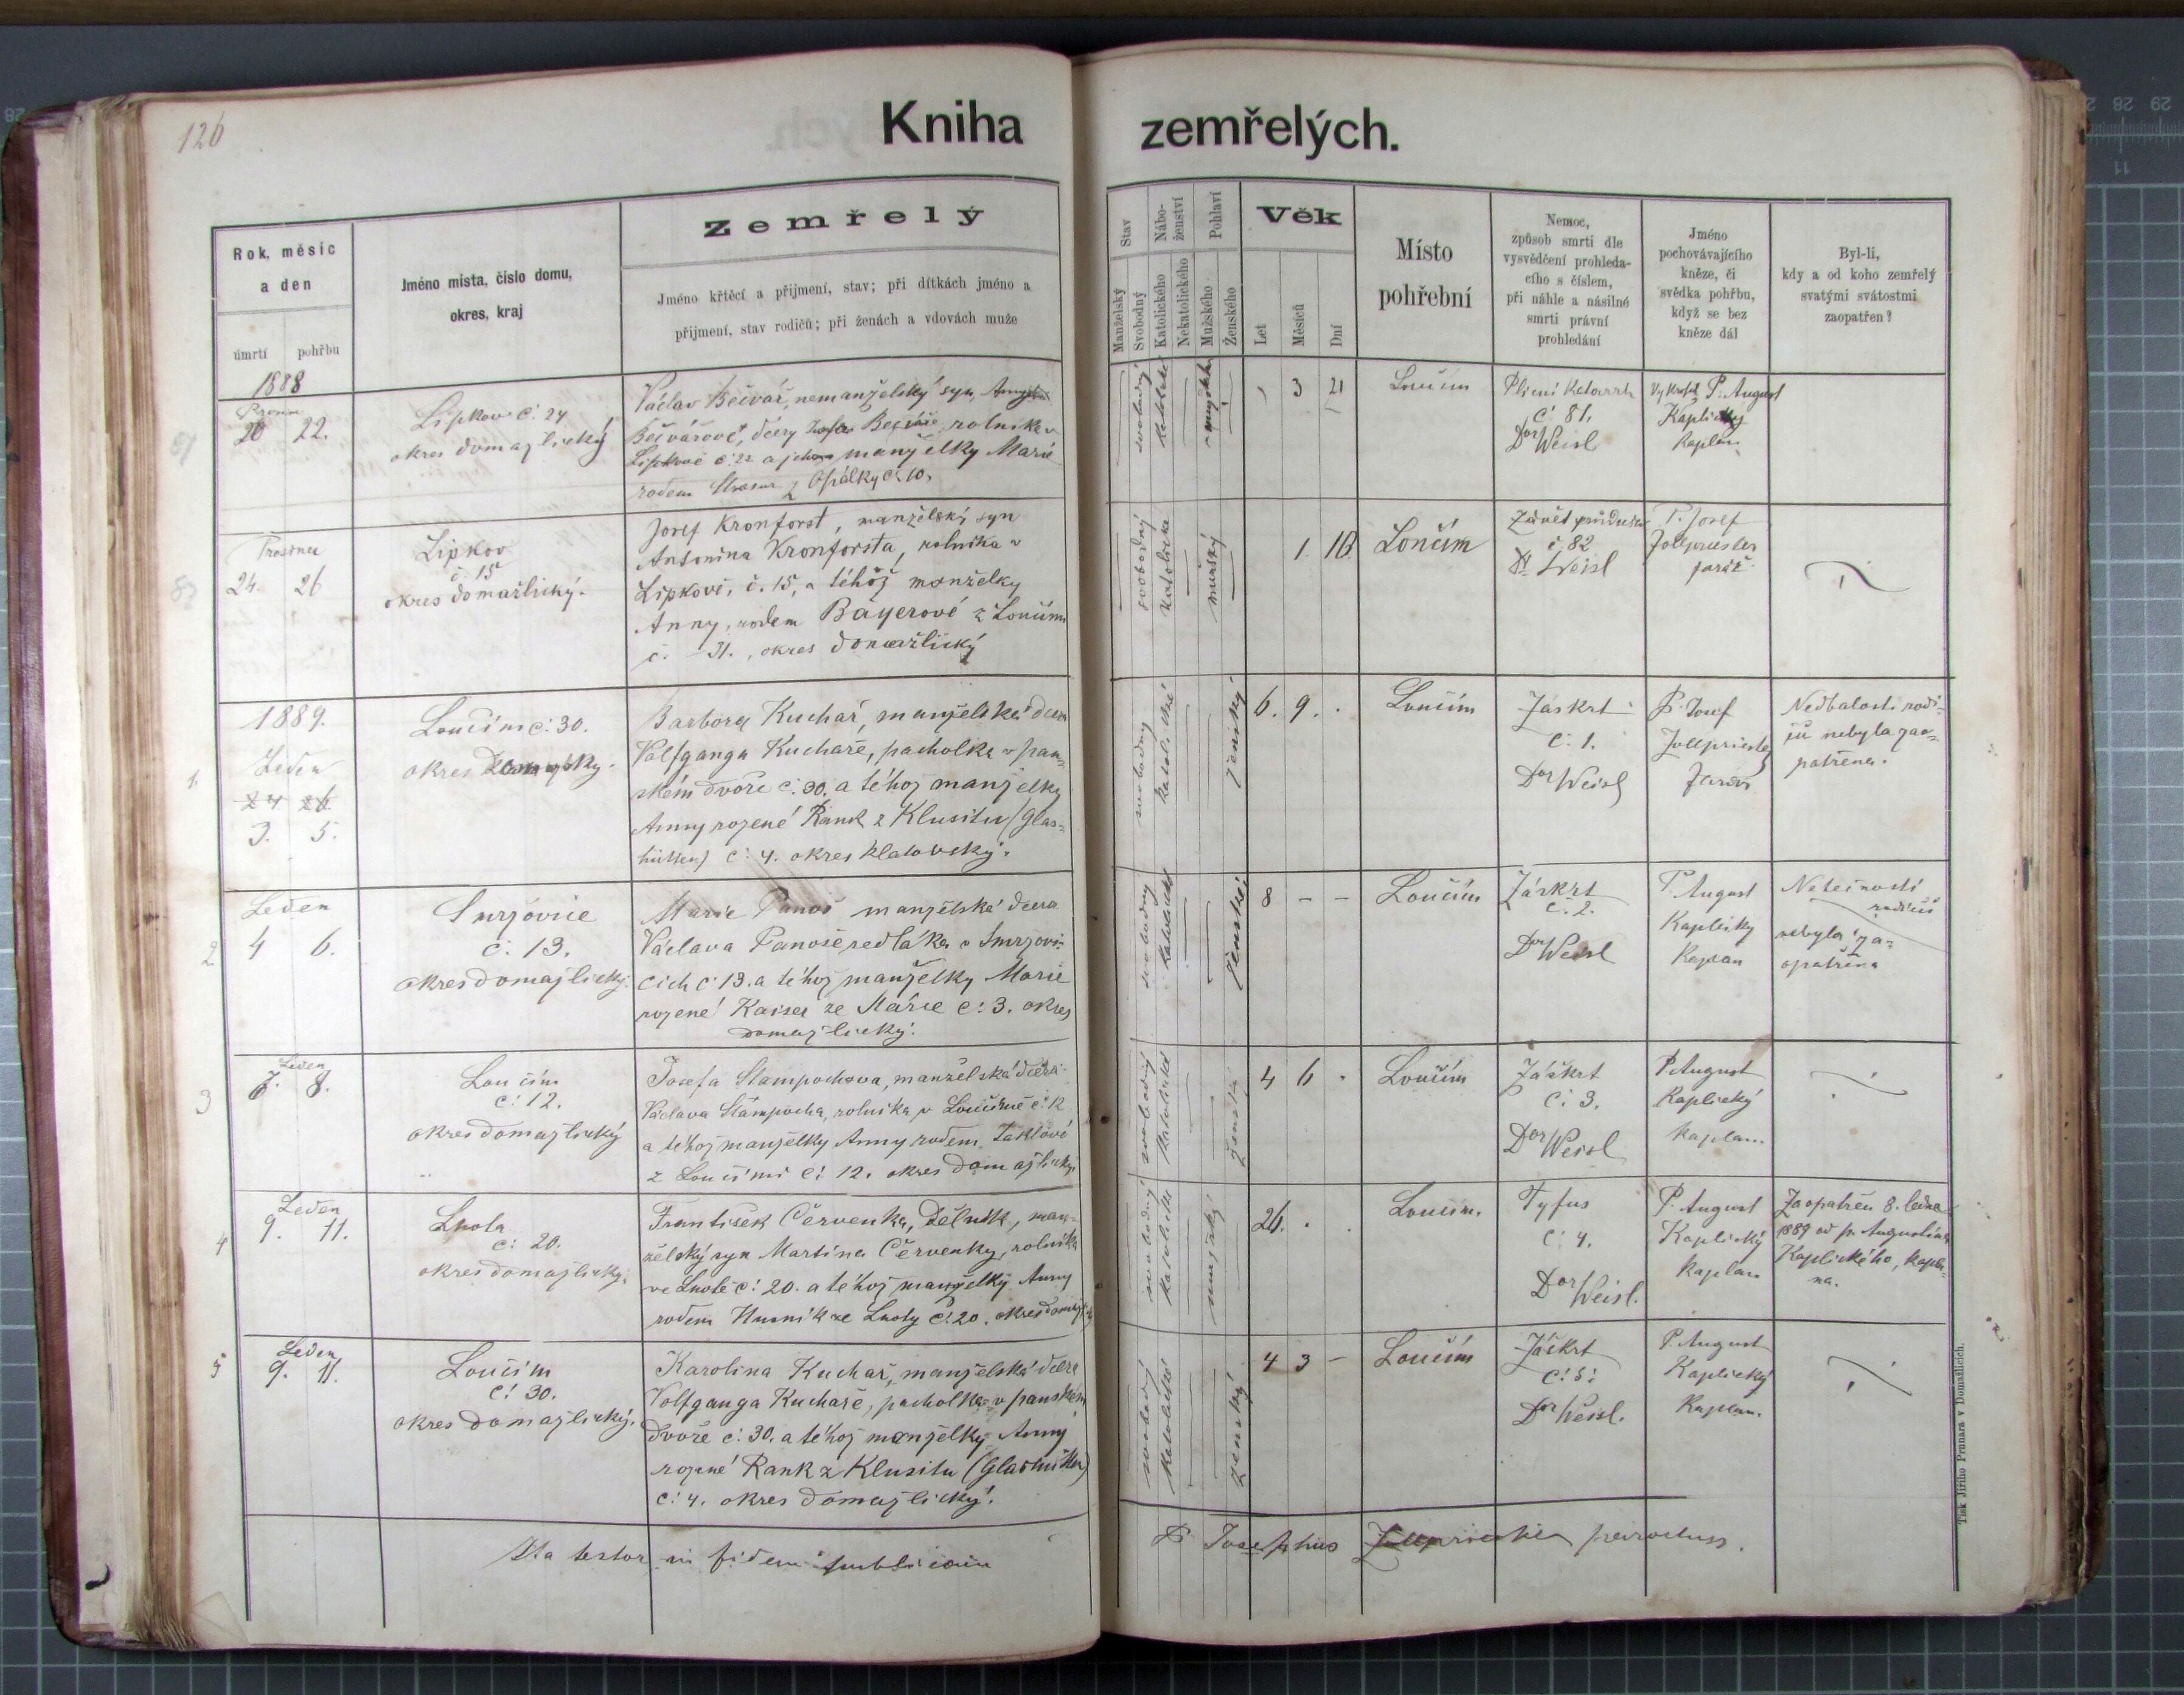 126
Kniha zemřelých.
Rok, měsíc
a den
úmrtí pohřbu
Jméno místa, číslo domu,
okres, kraj
Zemřelý
Jméno křtěcí a přijmení, stav; při dítkách jméno a
přijmení, stav rodičů; při ženách a vdovách muže
Stav
Manželský
Svobodný
Nábo-
ženství
Katolického
Nekatolického
Pohlaví
Mužského
Ženského
Věk
Let
Měsíců
Dní
Místo
pohřební
Nemoc,
způsob smrti dle
vysvědčení prohleda-
cího s číslem,
při náhle a násilné
smrti právní
prohledání
Jméno
pochovávajícího
kněze, či
svědka pohřbu,
když se bez
kněze dál
Byl-li,
kdy a od koho zemřelý
svatými svátostmi
zaopatřen?
1888
20 22.
Lipkov č. 24
okres domažlický
Václav Bečvář, nemanželský syn
Bečvářové, dcery Bečváře rolníka v
Lipkově č. 22 a jeho manželky Marie
rodem z Opálky č. 10.
svobodný
katolické
mužské
3 21
Loučim
Plicní Katarrh
č 81.
Dor Weisl
P. August
Kaplický
Kaplan
Prosinec
24. 26
Lipkov
č 15
okres domažlický.
Josef Kronforst, manželský syn
Antonína Kronforsta, rolníka v
Lipkově, č. 15, a téhož manželky
Anny, rodem Bayerové z Loučimi
č. 31., okres domažlický
svobodný
katolické
mužský
1. 10.
Loučim
Zánět průdušek
č 82
Dr Weisl
P. Josef
Zollpriester
farář
1889.
1.
Leden
24 26
3. 5.
Loučim č: 30.
okres
Barbora Kuchař, manželská dcera
Volfganga Kuchaře, pacholka v pan-
ském dvoře č. 30. a téhož manželky
Anny rozené Rank z Klusitu (Glas-
hütten) č: 4. okres klatovský.
svobodný
katolické
ženský
6. 9. .
Loučim
Záškrt
č: 1.
Dor Weisl
P. Josef
Zollpriester
Farář
Nedbalostí rodi-
jů nebyla zao-
patřena.
2
Leden
4 6.
Smržovice
č: 13.
okres domažlický.
Marie Panoš manželská dcera
Václava Panoše sedláka v Smržovi-
cích č: 13. a téhož manželky Marie
rozené Kaiser ze Stáríe č: 3. okres
domažlický.
svobodný
katolické
ženské
8 - -
Loučim
Záškrt
č. 2.
Dor Weisl
P. August
Kaplický
Kaplan
Netečností
rodičů
nebyla za-
opatřena
3
Leden
8.
Loučim
č: 12.
okres domažlický
Josefa Stampochova, manželská dcera
Václava Stampocha, rolníka v Loučimě č: 12
a téhož manželky Anny rodem
z Loučimi č: 12. okres domažlický.
svobodný
katolické
ženské
4 6 .
Loučim
Záškrt
č: 3.
Dor Weisl
P. August
Kaplický
Kaplan.
4
Leden
9. 11.
Lhota
č: 20.
okres domažlický.
František Červenka, dělník, man-
želský syn Martina Červenky, rolníka
ve Lhotě č: 20. a téhož manželky Anny
rodem Husník ze Lhoty č: 20. okres domažlický
svobodný
katolické
mužský
26. . .
Loučim.
Tyfus
č: 4.
Dor Weisl.
P. August
Kaplický
Kaplan
Zaopatřen 8. ledna
1889 od p. Augustina
Kaplického, kapla-
na.
5
Leden
9. 11.
Loučim
č: 30.
okres domažlický.
Karolina Kuchař, manželská dcera
Volfganga Kuchaře, pacholka v panském
dvoře č: 30. a téhož manželky Anny
rozené Rank z Klusitu (Glashütten)
č: 4. okres domažlický.
svobodný
katolické
ženský
4 3 -
Loučim
Záškrt
č: 5:
Dor Weisl.
P. August
Kaplický
Kaplan.
Ita testor in fidem publicam
P. Josephus Zollpriester parochus.
Tisk Jiřího Prunara v Domažlicích.